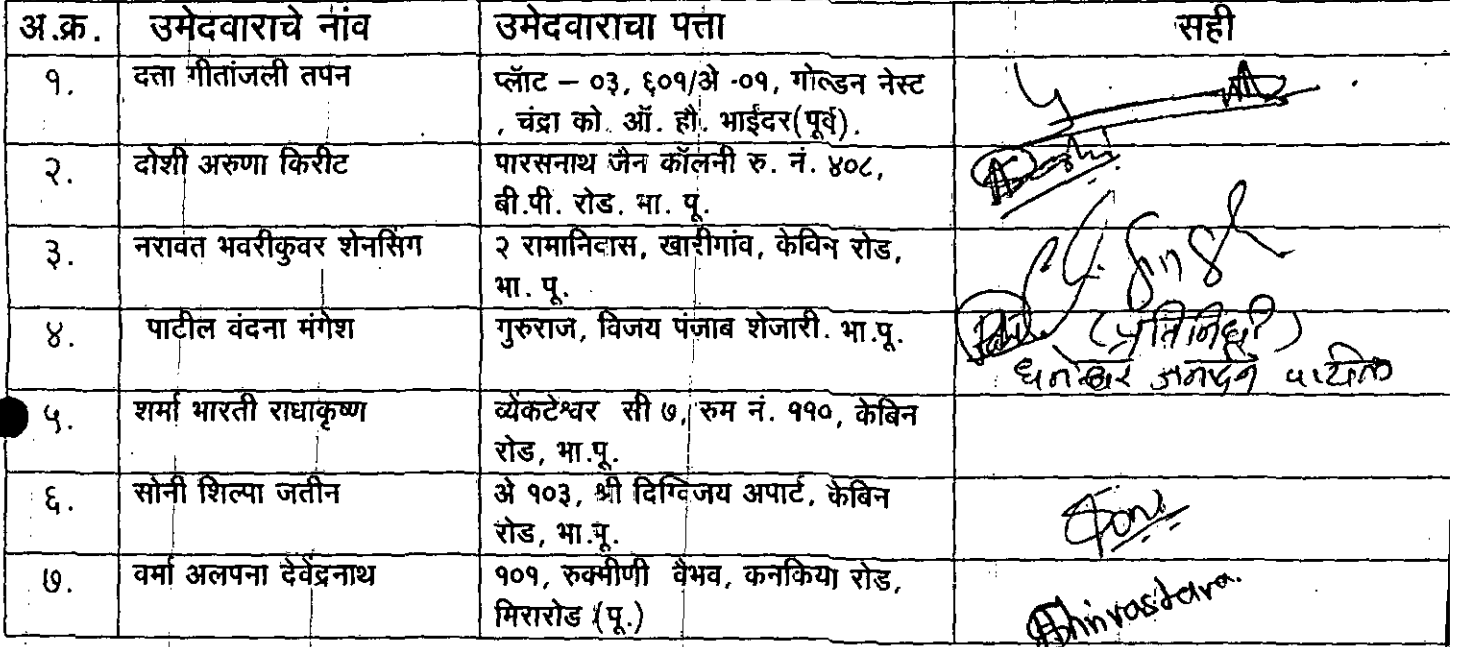 अ.क्र. उमेदवाराचे नांव उमेदवाराचा पत्ता सही
१. दत्ता गीतांजली तपन प्लॅाट – ०३, ६०१/अे -०१, गोल्डन नेस्ट
, चंद्रा को. ऑ. हौ. भाईंदर(पूर्व).
२. दोशी अरुणा किरीट पारसनाथ जैन कॉलनी रु. नं. ४०८,
बी.पी. रोड. भा. पू.
३. नरावत भवरीकुवर शेनसिंग २ रामानिवास, खारीगांव, केविन रोड,
भा. पू.
४. पाटील वंदना मंगेश गुरुराज, विजय पंजाब शेजारी. भा.पू. (प्रतिनिधी)
५. शर्मा भारती राधाकृष्ण व्येंकटेश्वर सी ७, रुम नं. ११०, केबिन
रोड, भा.पू.
६. सोनी शिल्पा जतीन अे १०३, श्री दिग्विजय अपार्ट, केबिन
रोड, भा.पू. Soni
७. वर्मा अलपना देवेंद्रनाथ १०१, रुक्मीणी वैभव, कनकिया रोड,
मिरारोड (पू.)